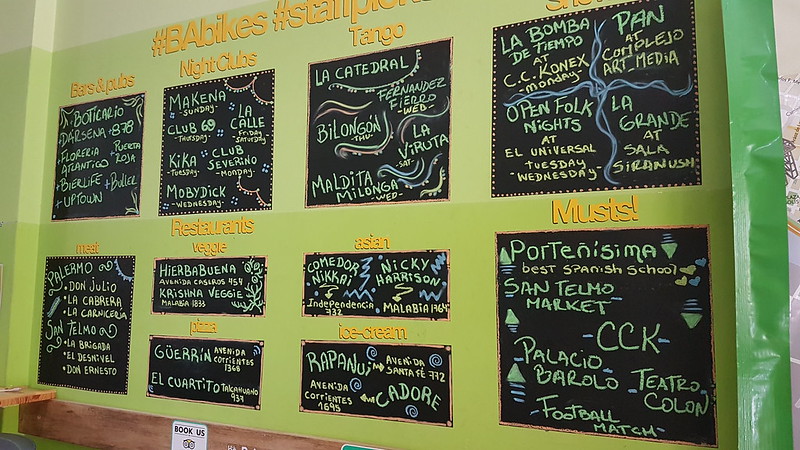 #BAbikes
Bars & pubs
BOTICARIO
DARSENA 878
FLORERIA
ATLANTIGO
PUERTA
ROJA
BIERLIFE
BULLER
UPTOWN
Night Clubs
MAKENA
-SUNDAY-
CLUB 69
-THURSDAY-
LA
CALLE
FRIDAY
SATURDAY-
KIKA
-Tuesday-
CLUB
SEVERINO
-MONDAY-
MOBYDICK
-WEDNESDAY-
Tango
LA CATEDRAL
FERNANDEZ
FIERRO
-WED-
BILONGÓN
-THU-
LA
VIRUTA
-SAT-
MALDITA
MILONGA
-WED-
LA BOMBA
DE TIEMPO
AT
C.C. KONEX
-MONDAY-
PAN
AT
COMPLEJO
ART MEDIA
OPEN FOLK
NIGHTS
AT
EL UNIVERSAL
TUESDAY
-WEDNESDAY-
LA
GRANDE
AT
SALA
SIRANUSH
Restaurants
meat
PALERMO
• DON JULIO
• LA CABRERA
• LA CARNICERÍA
SAN TELMO
• LA BRIGADA
• EL DESNIVEL
• DON ERNESTO
veggie
HIERBABUENA
AVENIDA CASEROS 454
KRISHNA VEGGIE
MALABIA 1833
asian
COMEDOR
NIKKAI
Independencia
732
NICKY
HARRISON
MALABIA 1764
pizza
GÜERRÍN
AVENIDA
CORRIENTES
1368
EL CUARTITO
TALCAHUANO
937
ice-cream
RAPANUI
AVENIDA
SANTA FÉ 772
AVENIDA
CORRIENTES
1695
CADORE
Musts!
PORTEÑÍSIMA
best SPANISH SCHOOL
SAN TELMO
MARKET
CCK
PALACIO
BAROLO
TEATRO
COLON
FOOTBALL
MATCH
BOOK US